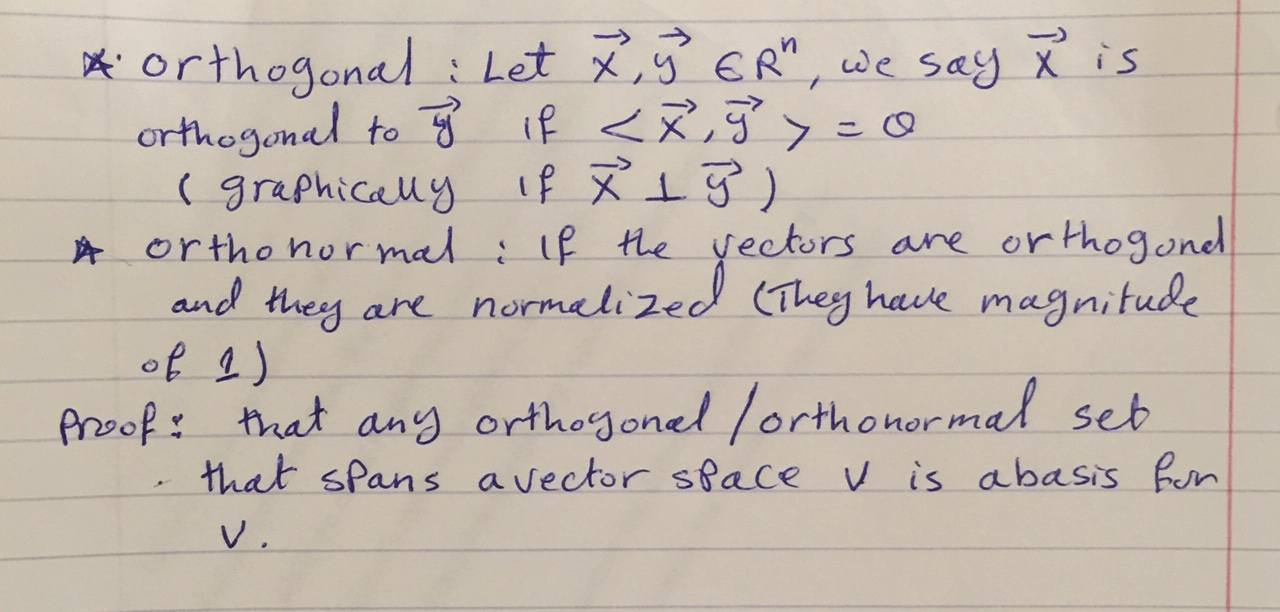 * orthogonal : Let x⃗, y⃗ ∈ Rⁿ, we say x⃗ is
orthogonal to y⃗ if < x⃗, y⃗ > = 0
( graphically if x⃗ ⊥ y⃗ )
* orthonormal : if the vectors are orthogonal
and they are normalized (They have magnitude
of 1)
Proof : that any orthogonal / orthonormal set
that spans a vector space V is a basis for
V.